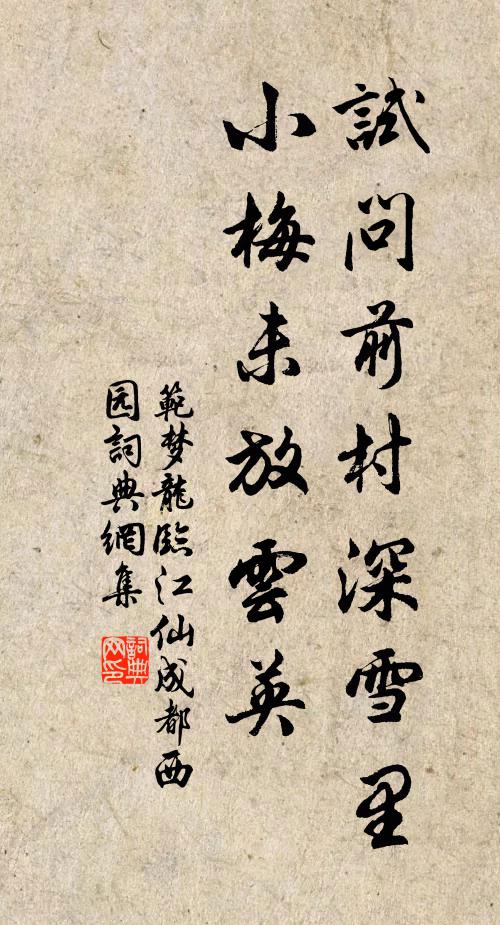 試問前村深雪里
小梅未放雲英
範梦龍臨江仙成都西
园詞典網集
詞典
网印